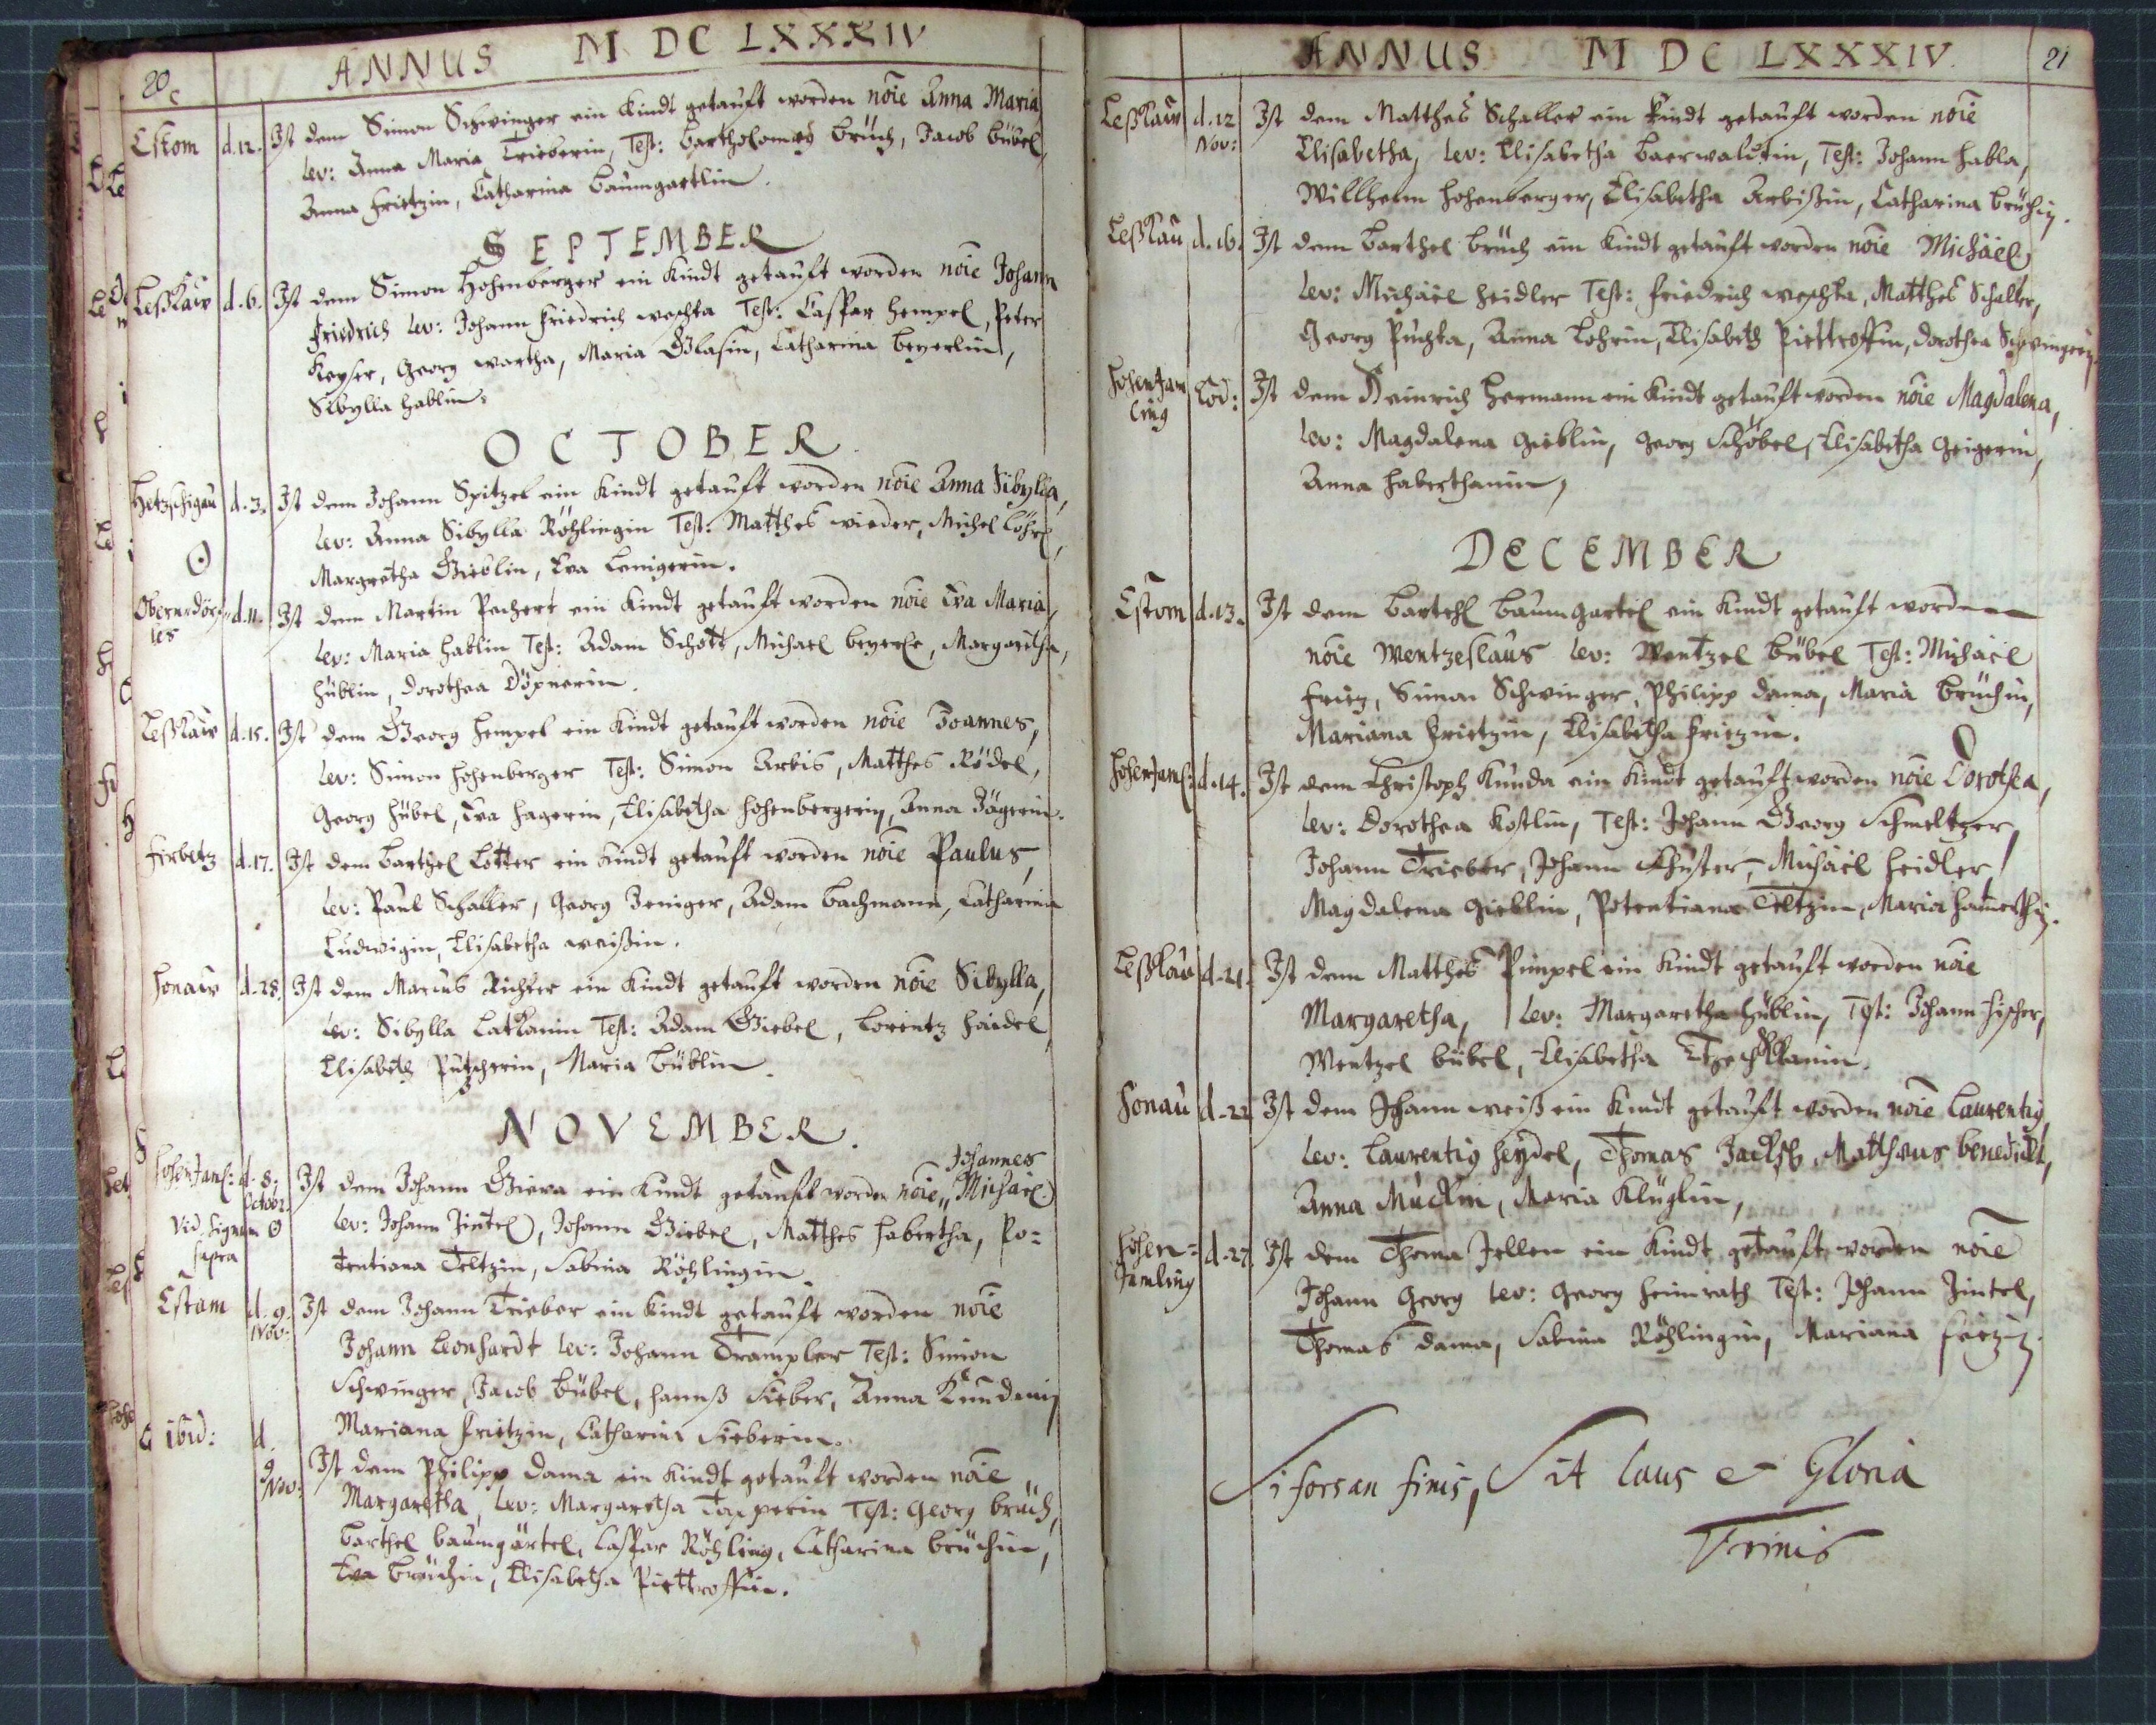 20
ANNUS M DC LXXXIV
Estom d. 12. Ist dem Simon Schwinger ein Kindt getauft worden nõie Anna Maria
Lev: Anna Maria Trieberin, Test: Bartholomeo Brüch, Jacob Bübel,
Anna Frietzin, Catharina Baumgartlin.
SEPTEMBER
Leßkaw d. 6. Ist dem Simon Hohenberger ein Kindt getauft worden nõie Johann
Friedrich Lev: Johann Friedrich Test: Caspar Hempel, Peter
Keyser, Georg Wartha, Maria Glasin, Catharina Beyerlin,
Sibylla Hablin.
OCTOBER
Hetzschigau d. 3. Ist dem Johann Spitzel ein Kindt getauft worden nõie Anna Sibylla,
Lev: Anna Sibylla Röhlingin Test: Matthes Wieder, Michel Löhrl,
Margretha Gieblin, Eva
d. 11. Ist dem Martin Pechert ein Kindt getauft worden nõie Eva Maria,
Lev: Maria Hablin Test: Adam Schott, Michael Beyerle, Margaretha
Hüblin, Dorothea Döpnerin.
Leßkaw d. 15. Ist dem Georg Hempel ein Kindt getauft worden nõie Joannes,
Lev: Simon Hohenberger Test: Simon Arbis, Matthes Rödel,
Georg Hübel, Eva Hagerin, Elisabetha Hohenbergerin, Anna Jägerin.
Firbetz d. 17. Ist dem Barthel Lotter ein Kindt getauft worden nõie Paulus,
Lev: Paul Schaller, Georg Zeniger, Adam Bachmann, Catharina
Ludwigin, Elisabetha Weißin.
Honaw d. 28. Ist dem Marcus Richter ein Kindt getauft worden nõie Sibylla,
Lev: Sibylla Test: Adam Giebel, Lorentz Haidel
Elisabeth Maria Büblin.
NOVEMBER.
Johannes
Hohenjaml: d. 8. Ist dem Johann Giera ein Kindt getauft worden nõie Michael
Octobr.
Vid. Signum supra Lev: Johann Zintel, Johann Giebel, Matthes Habertha, Po-
tentiana Teltzin, Sabina Röhlingin.
Estam d. 9. Nov: Ist dem Johann Trieber ein Kindt getauft worden nõie
Johann Leonhardt Lev: Johann Trampler Test: Simon
Schwinger, Jacob Bübel, Hannß Sieber, Anna
Mariana Frietzin, Catharina Sieberin.
ibid: d. 9 Nov: Ist dem Philipp Dama ein Kindt getauft worden nõie
Margaretha, Lev: Margaretha Tapperin Test: Georg Brüch,
Barthel Baumgärtel, Caspar Röhling, Catharina Brüchin,
Eva Brüchin, Elisabetha Piettroffin.
ANNUS M DC LXXXIV. 21
Leßkaw d. 12 Nov: Ist dem Matthes Schaller ein Kindt getauft worden nõie
Elisabetha, Lev: Elisabetha Baerwaldtin, Test: Johann Habla,
Willhelm Hohenberger, Elisabetha Arbißin, Catharina Brüchin.
Leßkau d. 16. Ist dem Barthel Brüch ein Kindt getauft worden nõie Michäel,
Lev: Michäel Heidler Test: Friedrich Matthes Schaller,
Georg Puchta, Anna Lohrin, Elisabeth Piettroffin, Dorothea Schwingerin.
Hohenjam
ling Eod: Ist dem Heinrich Hermann ein Kindt getauft worden nõie Magdalena,
Lev: Magdalena Gieblin, Georg Schöbel, Elisabetha Geigerin,
Anna Haberthanin,
DECEMBER
Estom d. 13. Ist dem Bartehl Baumgartel ein Kindt getauft worden
nõie Wentzeslaus Lev: Wentzel Bübel Test: Michäel
Frietz, Simon Schwinger, Philipp Dama, Maria Brüchin,
Mariana Frietzin, Elisabetha Frietzin.
Hohenjaml: d. 14. Ist dem Christoph Kunda ein Kindt getauft worden nõie Dorothea,
Lev: Dorothea Kostlin, Test: Johann Georg Schmeltzer,
Johann Trieber, Johann Schuster, Michäel Heidler,
Magdalena Gieblin, Potentiana Teltzin, Maria
Leßkau d. 21. Ist dem Matthes Pimpel ein Kindt getauft worden nõie
Margaretha, Lev: Margaretha Hüblin, Test: Johann Fischer,
Wentzel Bübel, Elisabetha
Honau d. 22 Ist dem Johann Weiß ein Kindt getauft worden nõie Laurentig
Lev: Laurentig Heydel, Thomas Matthæus Benedickt,
Anna Mücklin, Maria Klüglin,
Hohen=
Jamling d. 27. Ist dem Thoma Zellen ein Kindt getauft worden nõie
Johann Georg Lev: Georg Heimrath Test: Johann Zintel,
Thomas Dama, Sabina Röhlingin, Mariana Frietzin.
Si forsan finis, Sit laus & Gloria
Trinis